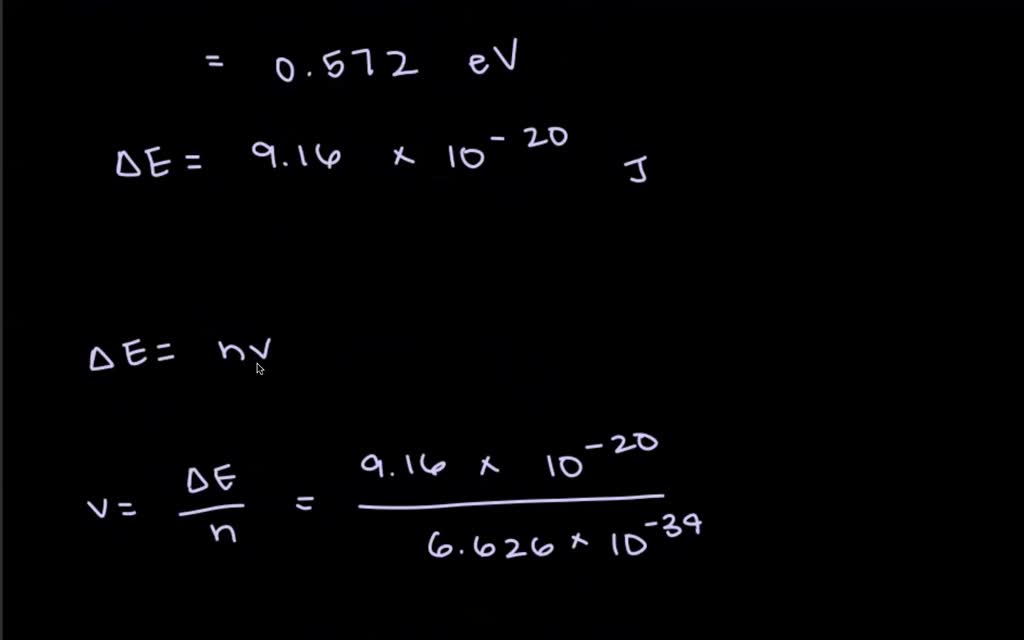 = 0.572 eV
ΔE = 9.16 × 10^-20 J
ΔE = hν
ν = ΔE/h = 9.16 × 10^-20 / 6.626 × 10^-34